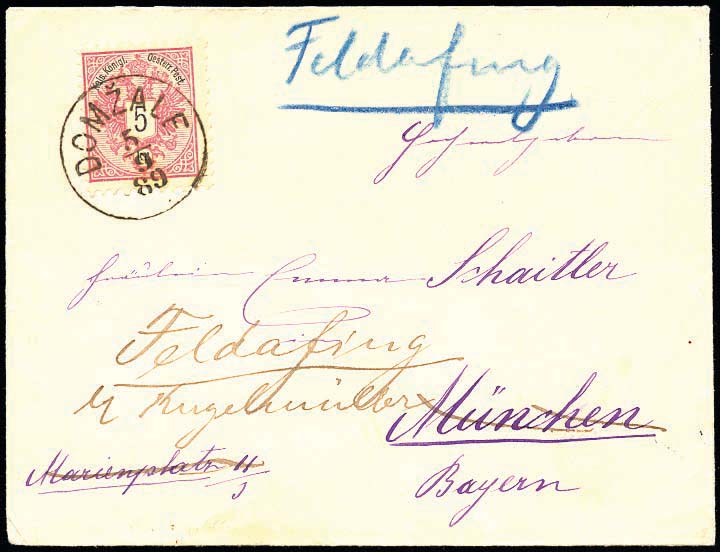 Feldafing
Kais. Königl. Oesterr. Post.
5
DOMŽALE
5/9
89
Hochwohlgeboren
Fräulein Emma Schaitler
Feldafing
Kugelmüller
München
Marienplatz 11/
Bayern